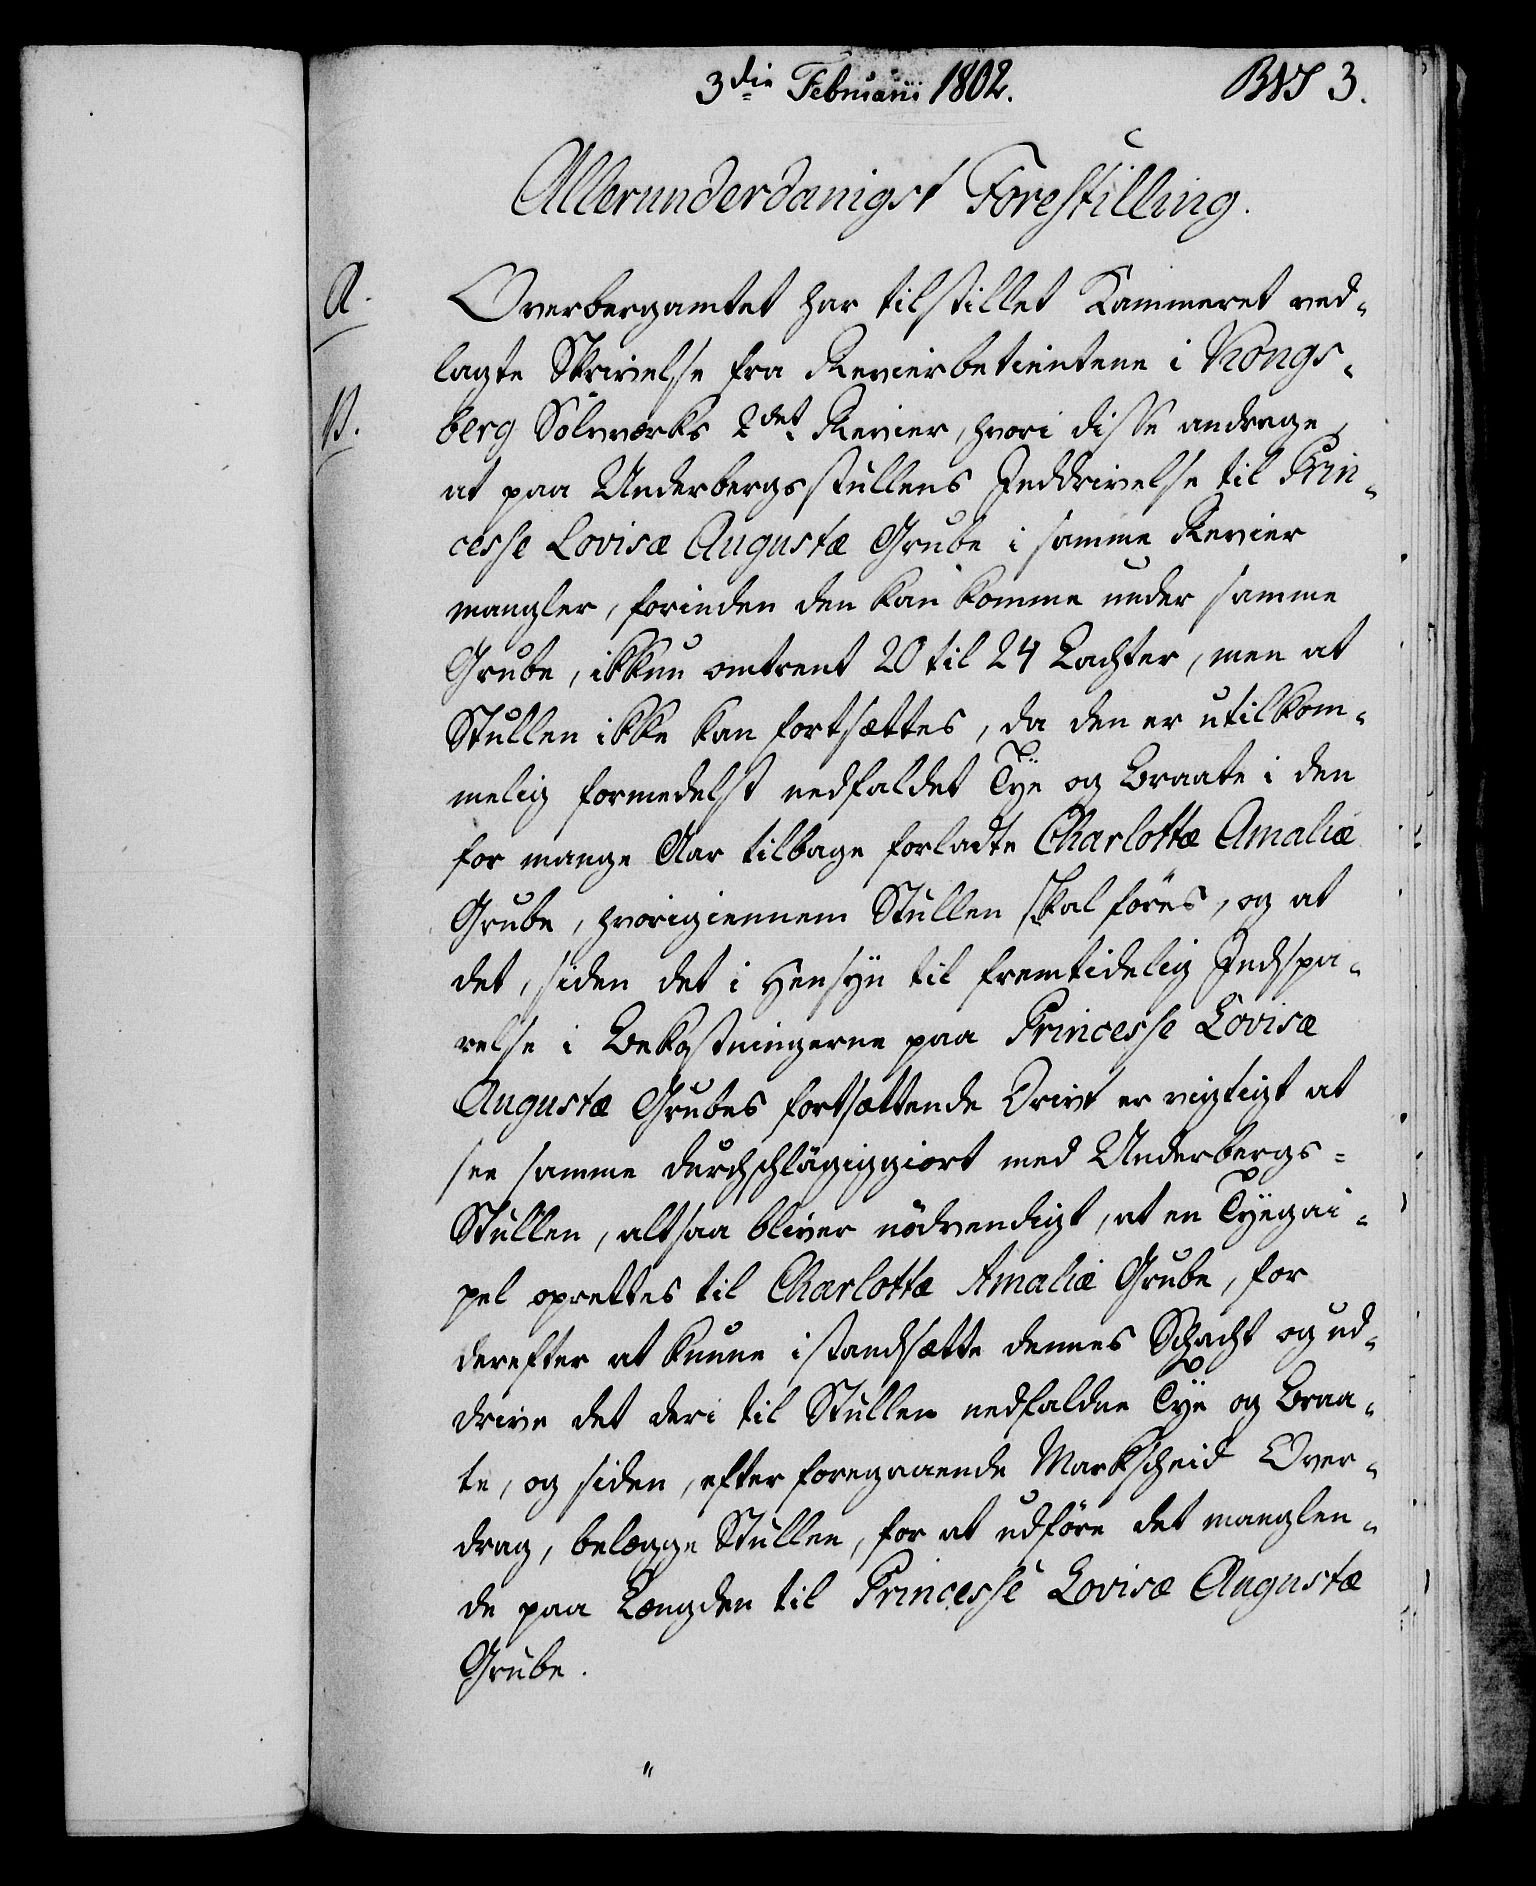 3die Februarii 1802. BWS 3.
Allerunderdanigst Forestilling.
A. Overbergamtet har tilstillet Kammeret ved-
lagte Skrivelse fra Revierbetientene i Kongs-
B. berg Sölvværks 2det Revier, hvori disse andrage,
at paa Underbergsstullens Inddrivelse til Prin-
cesse Lovisæ Augustæ Grube i samme Revier
mangler, forinden den kan komme under samme
Grube, ikkun omtrent 20 til 24 Lachter, men at
Stullen ikke kan fortsættes, da den er utilkom-
melig formedelst nedfaldet Tye og Braate i den
for mange Aar tilbage forladte Charlottæ Amaliæ
Grube, hvorigiennem Stullen skal föres, og at
det, siden det i Hensyn til fremtidelig Indspa-
relse i Bekostningerne paa Princesse Lovisæ
Augustæ Grubes fortsættende Drivt er vigtigt at
see samme durchschlägiggiort med Underbergs-
Stullen, altsaa bliver nödvendigt, at en Tyegai-
pel oprettes til Charlottæ Amaliæ Grube, for
derefter at kunne istandsætte dennes Schacht og ud-
drive det deri til Stullen nedfaldne Tye og Braa-
te, og siden, efter foregaaende Markscheid Over-
drag, belægge Stullen, for at udföre det manglen-
de paa Længden til Princesse Lovisæ Augustæ
Grube.
"